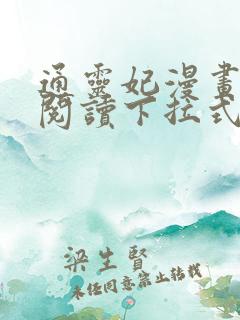 通靈妃漫畫
閱讀下拉式
梁生賢
未經同意禁止轉載